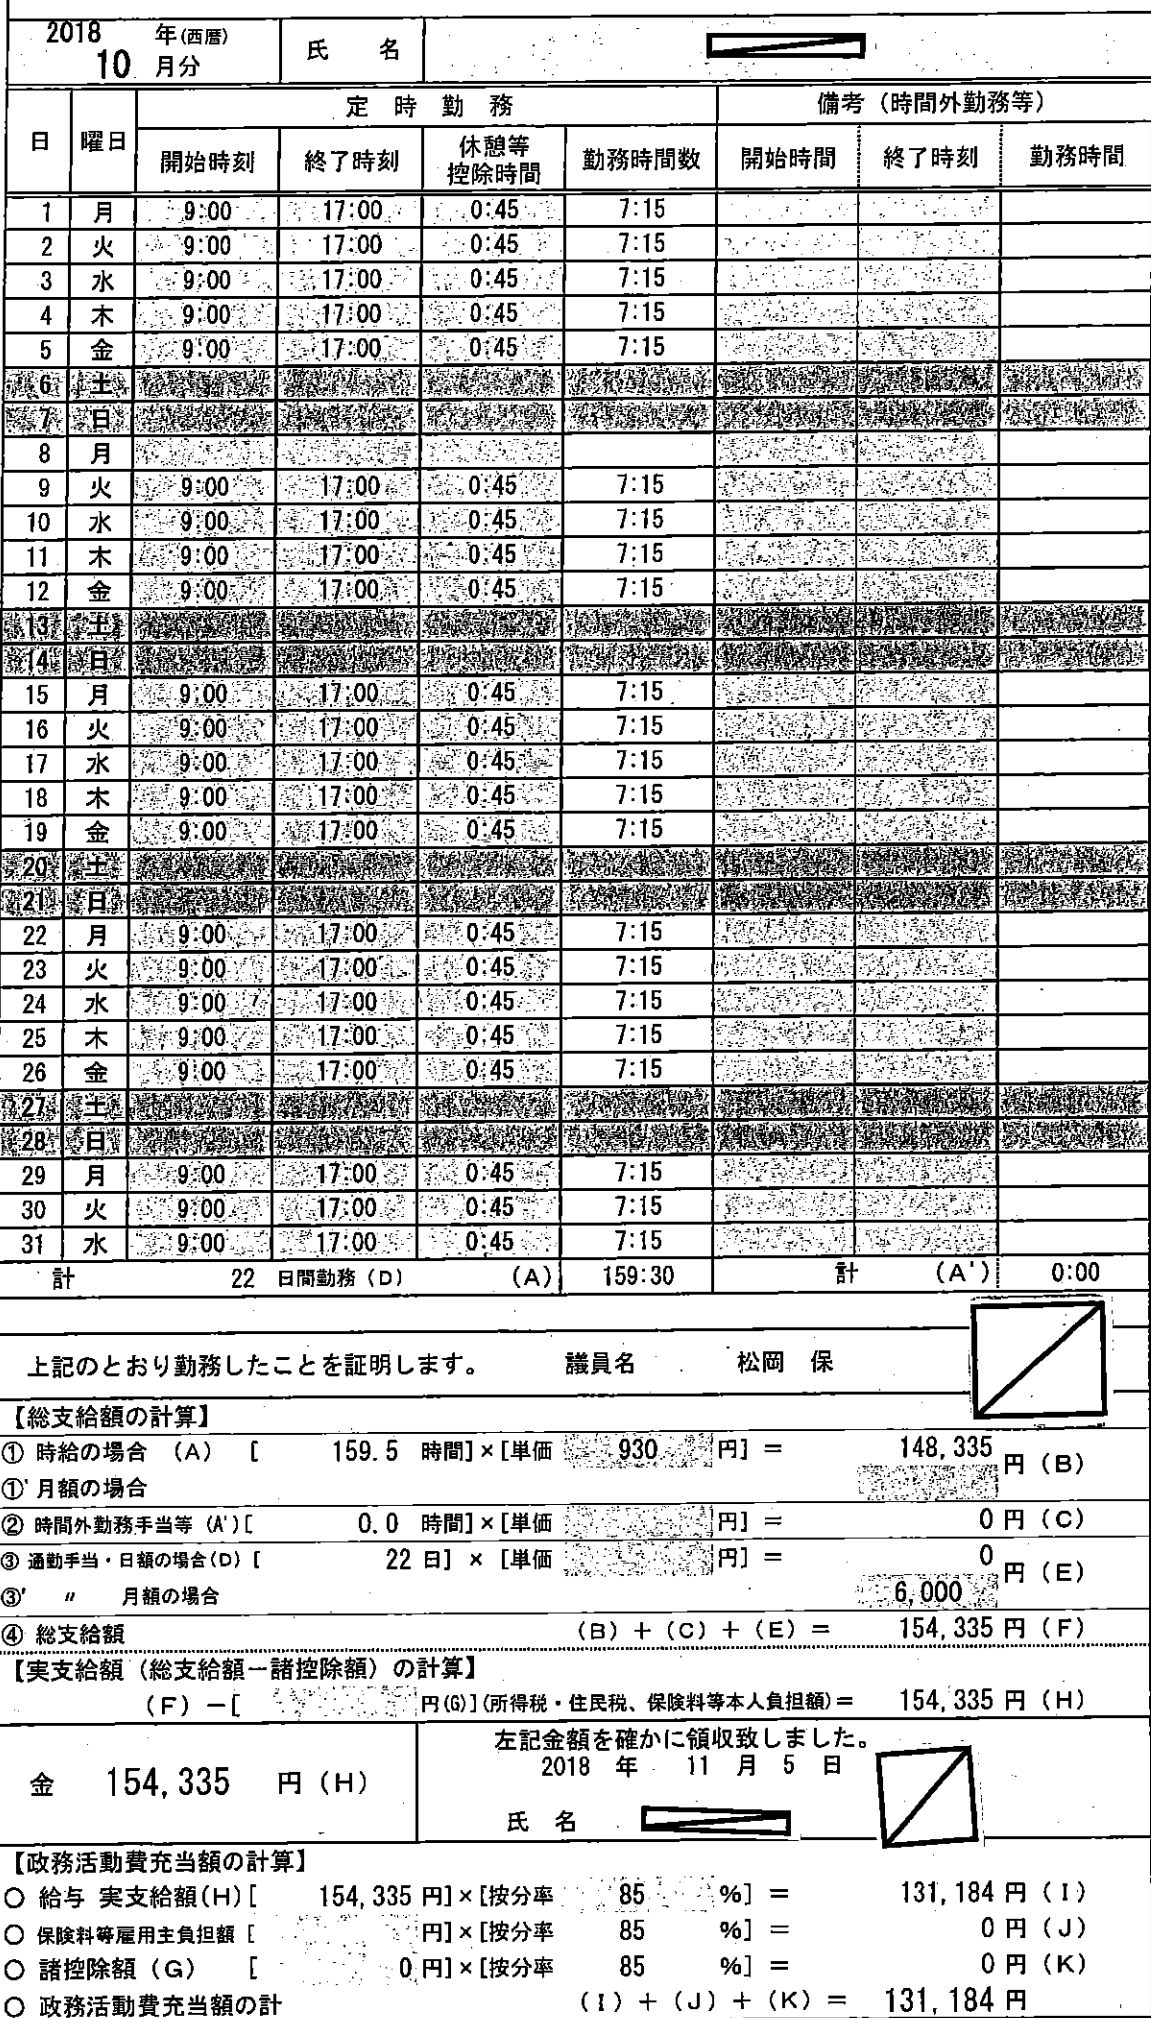 2018 年(西暦)
10 月分
氏 名
日 曜日 定時勤務 備考（時間外勤務等）
開始時刻 終了時刻 休憩等控除時間 勤務時間数 開始時間 終了時刻 勤務時間
1 月 9:00 17:00 0:45 7:15
2 火 9:00 17:00 0:45 7:15
3 水 9:00 17:00 0:45 7:15
4 木 9:00 17:00 0:45 7:15
5 金 9:00 17:00 0:45 7:15
6 土
7 日
8 月
9 火 9:00 17:00 0:45 7:15
10 水 9:00 17:00 0:45 7:15
11 木 9:00 17:00 0:45 7:15
12 金 9:00 17:00 0:45 7:15
13 土
14 日
15 月 9:00 17:00 0:45 7:15
16 火 9:00 17:00 0:45 7:15
17 水 9:00 17:00 0:45 7:15
18 木 9:00 17:00 0:45 7:15
19 金 9:00 17:00 0:45 7:15
20 土
21 日
22 月 9:00 17:00 0:45 7:15
23 火 9:00 17:00 0:45 7:15
24 水 9:00 17:00 0:45 7:15
25 木 9:00 17:00 0:45 7:15
26 金 9:00 17:00 0:45 7:15
27 土
28 日
29 月 9:00 17:00 0:45 7:15
30 火 9:00 17:00 0:45 7:15
31 水 9:00 17:00 0:45 7:15
計 22 日間勤務（D） （A） 159:30 計 （A'） 0:00
上記のとおり勤務したことを証明します。 議員名 松岡 保
【総支給額の計算】
① 時給の場合 （A） [ 159.5 時間]×[単価 930 円] ＝ 148,335 円（B）
①' 月額の場合
② 時間外勤務手当等（A'）[ 0.0 時間]×[単価 円] ＝ 0 円（C）
③ 通勤手当・日額の場合（D）[ 22 日] × [単価 円] ＝ 0 円（E）
③' 〃 月額の場合 6,000
④ 総支給額 （B）＋（C）＋（E）＝ 154,335 円（F）
【実支給額（総支給額－諸控除額）の計算】
（F）－[ 円(G)](所得税・住民税、保険料等本人負担額)＝ 154,335 円（H）
金 154,335 円（H）
左記金額を確かに領収致しました。
2018 年 11 月 5 日
氏 名
【政務活動費充当額の計算】
○ 給与 実支給額(H) [ 154,335 円]×[按分率 85 %] ＝ 131,184 円（I）
○ 保険料等雇用主負担額 [ 円]×[按分率 85 %] ＝ 0 円（J）
○ 諸控除額（G） [ 0 円]×[按分率 85 %] ＝ 0 円（K）
○ 政務活動費充当額の計 （I）＋（J）＋（K）＝ 131,184 円